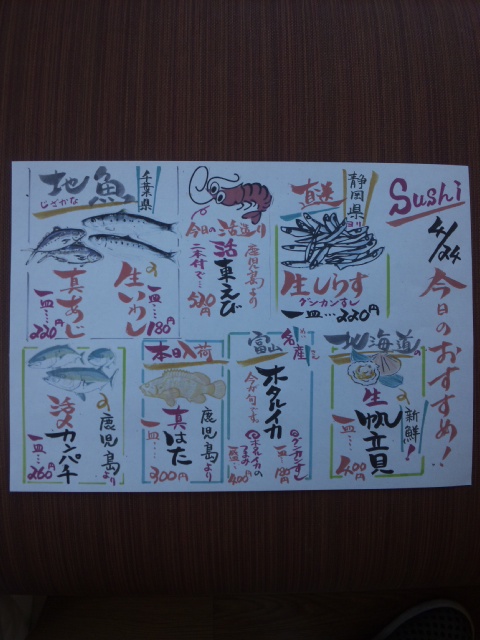 Sushi
4/24
今日のおすすめ!!
静岡県より
直送
生しらす
グンカンすし
一皿…220円
今日の活造り
鹿児島より
活車えび
二本付で…
520円
千葉県
地魚
じざかな
生いわし
一皿…180円
真あじ
一皿…220円
北海道の
新鮮!
生帆立貝
一皿…400円
富山
名産
ホタルイカ
今が旬です。
グンカンすし
一皿…180円
ホタルイカの
つまみ
400円
本日入荷
鹿児島より
真はた
一皿…
300円
鹿児島より
カンパチ
一皿…
260円